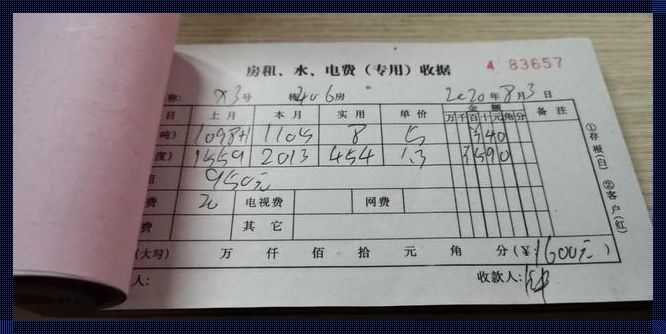 房租、水、电费（专用）收据 4 83657
称: 83号 栋406房 2020年8月3日
目 上月 本月 实用 单价 金额 备注
万千百十元角分
吨) 1098 1105 8 5 40
度) 1559 2013 454 1.3 590
租 950元
费 20 电视费 网费
费 其它
(大写) 万 仟 佰 拾 元 角 分 (¥:1600元)
人: 收款人:
①存根(白) ②客户(红)